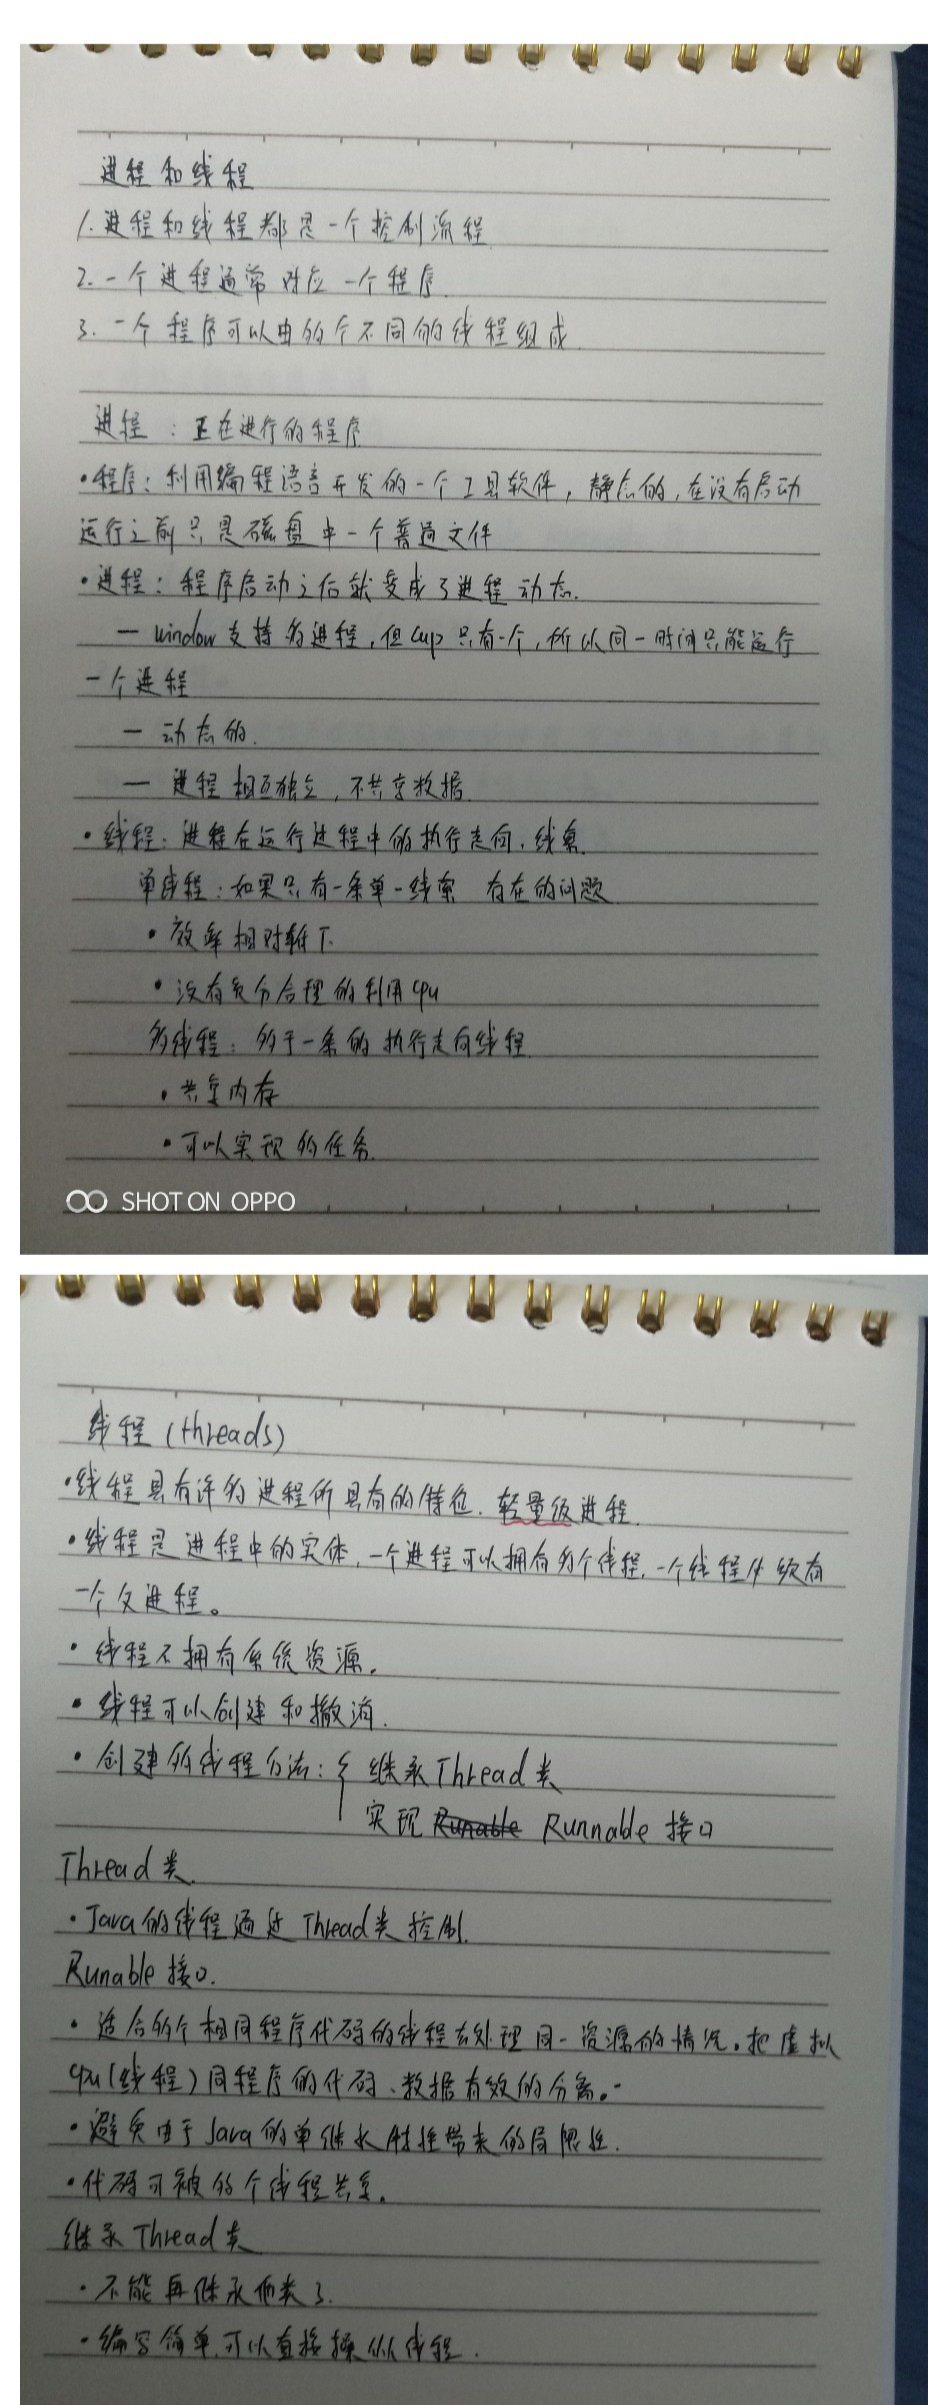 进程和线程
1.进程和线程都是一个控制流程.
2.一个进程通常对应一个程序.
3.一个程序可以由多个不同的线程组成.
进程：正在进行的程序
·程序：利用编程语言开发的一个工具软件，静态的，在没有启动
运行之前只是磁盘中一个普通文件
·进程：程序启动之后就变成了进程 动态.
— window支持多进程，但cup只有一个，所以同一时间只能运行
一个进程
— 动态的.
— 进程相互独立，不共享数据.
·线程：进程在运行过程中的执行走向，线索.
单线程：如果只有一条单一线索 存在的问题
·效率相对较下.
·没有充分合理的利用cpu
多线程：多于一条的执行走向线程.
·共享内存
·可以实现多任务.
SHOT ON OPPO
线程(threads)
·线程具有许多进程所具有的特色.轻量级进程.
·线程是进程中的实体，一个进程可以拥有多个线程，一个线程必须有
一个父进程。
·线程不拥有系统资源.
·线程可以创建和撤消.
·创建多线程方法：{ 继承Thread类
实现 Runable Runnable 接口
Thread类.
·Java的线程通过Thread类控制.
Runable接口.
·适合多个相同程序代码的线程去处理同一资源的情况。把虚拟
cpu(线程)同程序的代码、数据有效的分离。
·避免由于Java的单继承特性带来的局限性.
·代码可被多个线程共享。
继承Thread类
·不能再继承他类了.
·编写简单，可以直接操纵线程.